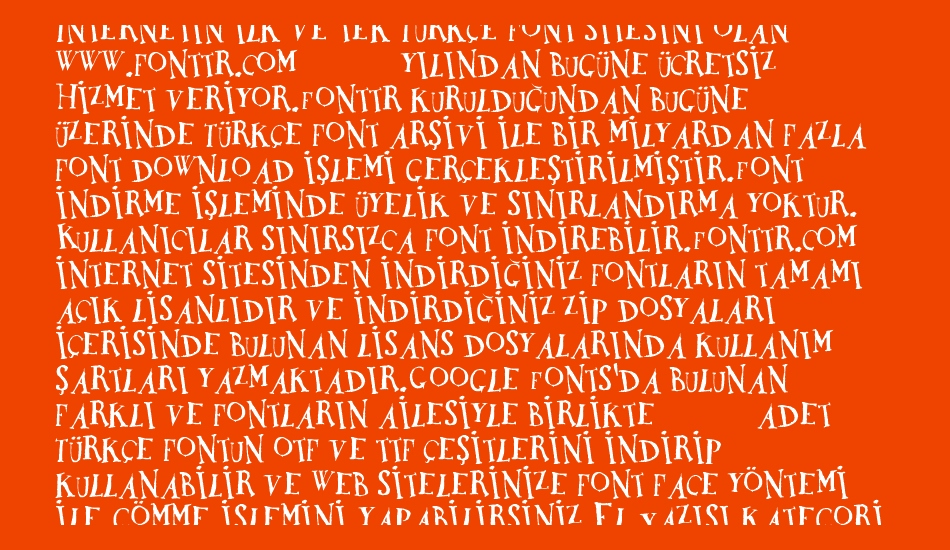 İNTERNETİN İLK VE TEK TÜRKÇE FONT SİTESİNİ OLAN
WWW.FONTTR.COM YILINDAN BUGÜNE ÜCRETSİZ
HİZMET VERİYOR.FONTTR KURULDUĞUNDAN BUGÜNE
ÜZERİNDE TÜRKÇE FONT ARŞİVİ İLE BİR MİLYARDAN FAZLA
FONT DOWNLOAD İŞLEMİ GERÇEKLEŞTİRİLMİŞTİR.FONT
İNDİRME İŞLEMİNDE ÜYELİK VE SINIRLANDIRMA YOKTUR.
KULLANICILAR SINIRSIZCA FONT İNDİREBİLİR.FONTTR.COM
İNTERNET SİTESİNDEN İNDİRDİĞİNİZ FONTLARIN TAMAMI
AÇIK LİSANLIDIR VE İNDİRDİĞİNİZ ZİP DOSYALARI
İÇERİSİNDE BULUNAN LİSANS DOSYALARINDA KULLANIM
ŞARTLARI YAZMAKTADIR.GOOGLE FONTS'DA BULUNAN
FARKLI VE FONTLARIN AİLESİYLE BİRLİKTE ADET
TÜRKÇE FONTUN OTF VE TTF ÇEŞİTLERİNİ İNDİRİP
KULLANABİLİR VE WEB SİTELERİNİZE FONT FACE YÖNTEMİ
İLE GÖMME İŞLEMİNİ YAPABİLİRSİNİZ EL YAZISI KATEGORİ